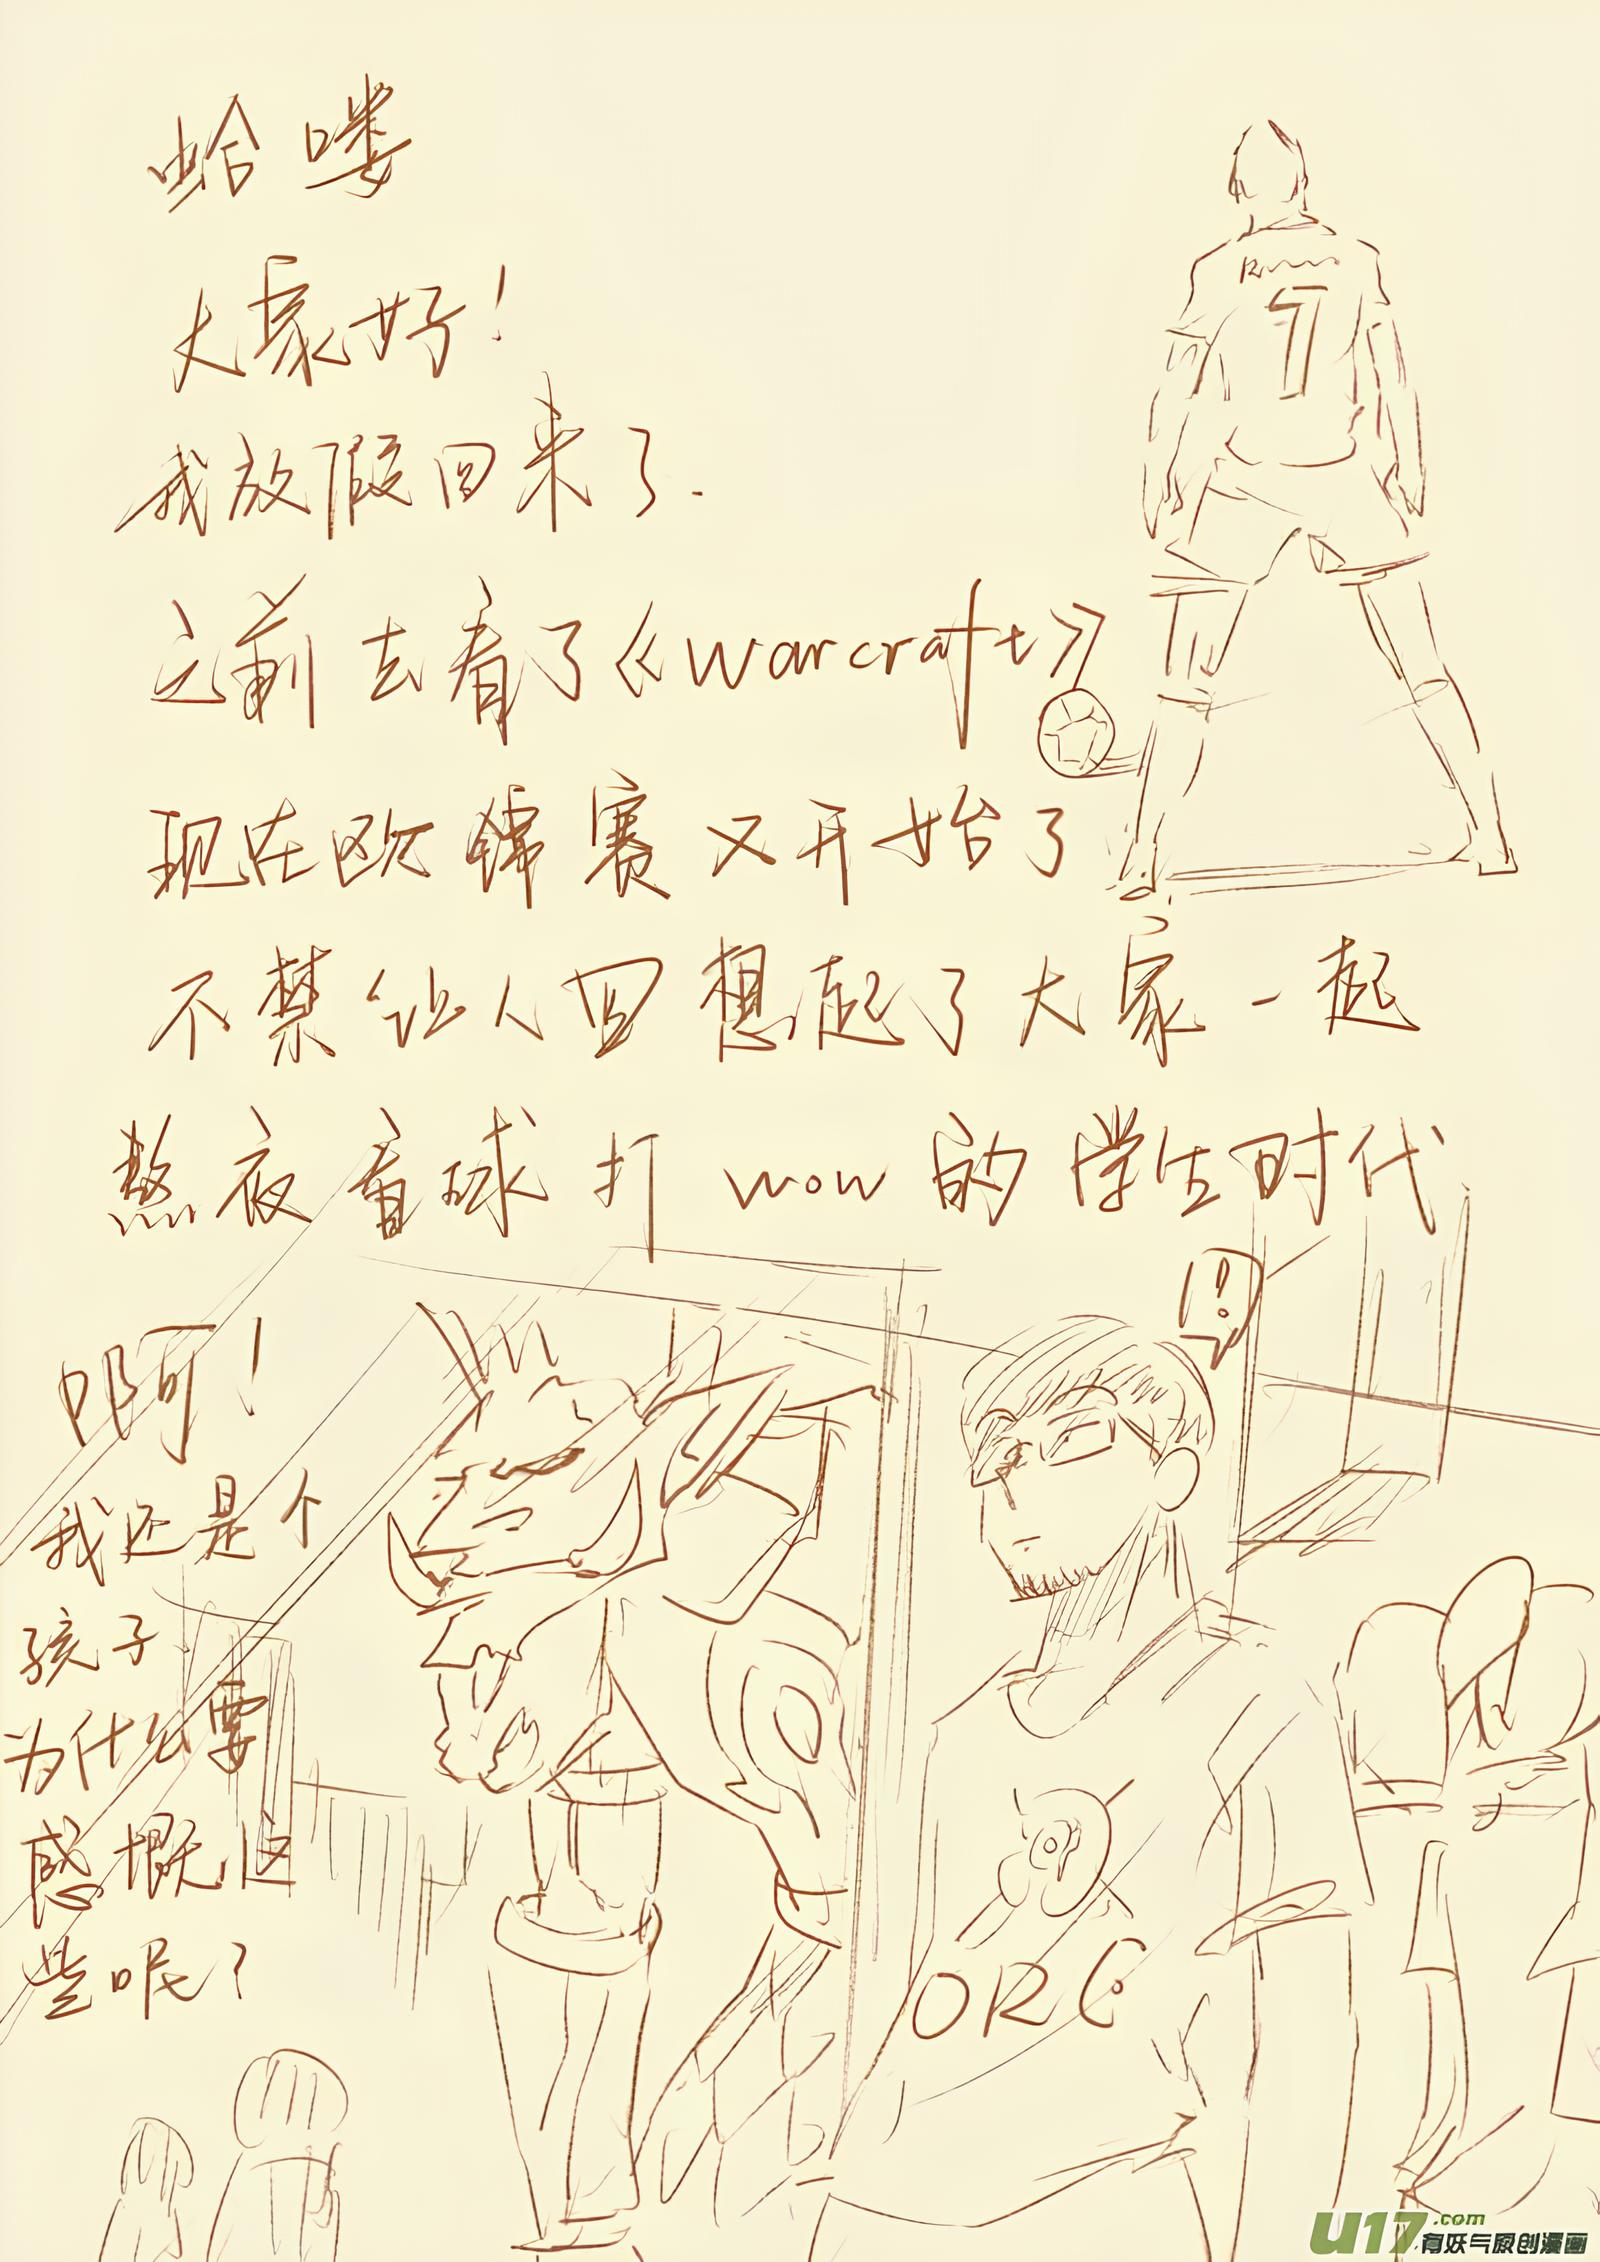 蛤喽
大家好!
我放假回来了.
之前去看了《warcraft》
现在欧锦赛又开始了
不禁让人回想起了大家一起
熬夜看球打wow的学生时代
7
!?
啊!
我还是个
孩子
为什么要
感慨这
些呢?
ORC
U17.com
有妖气原创漫画